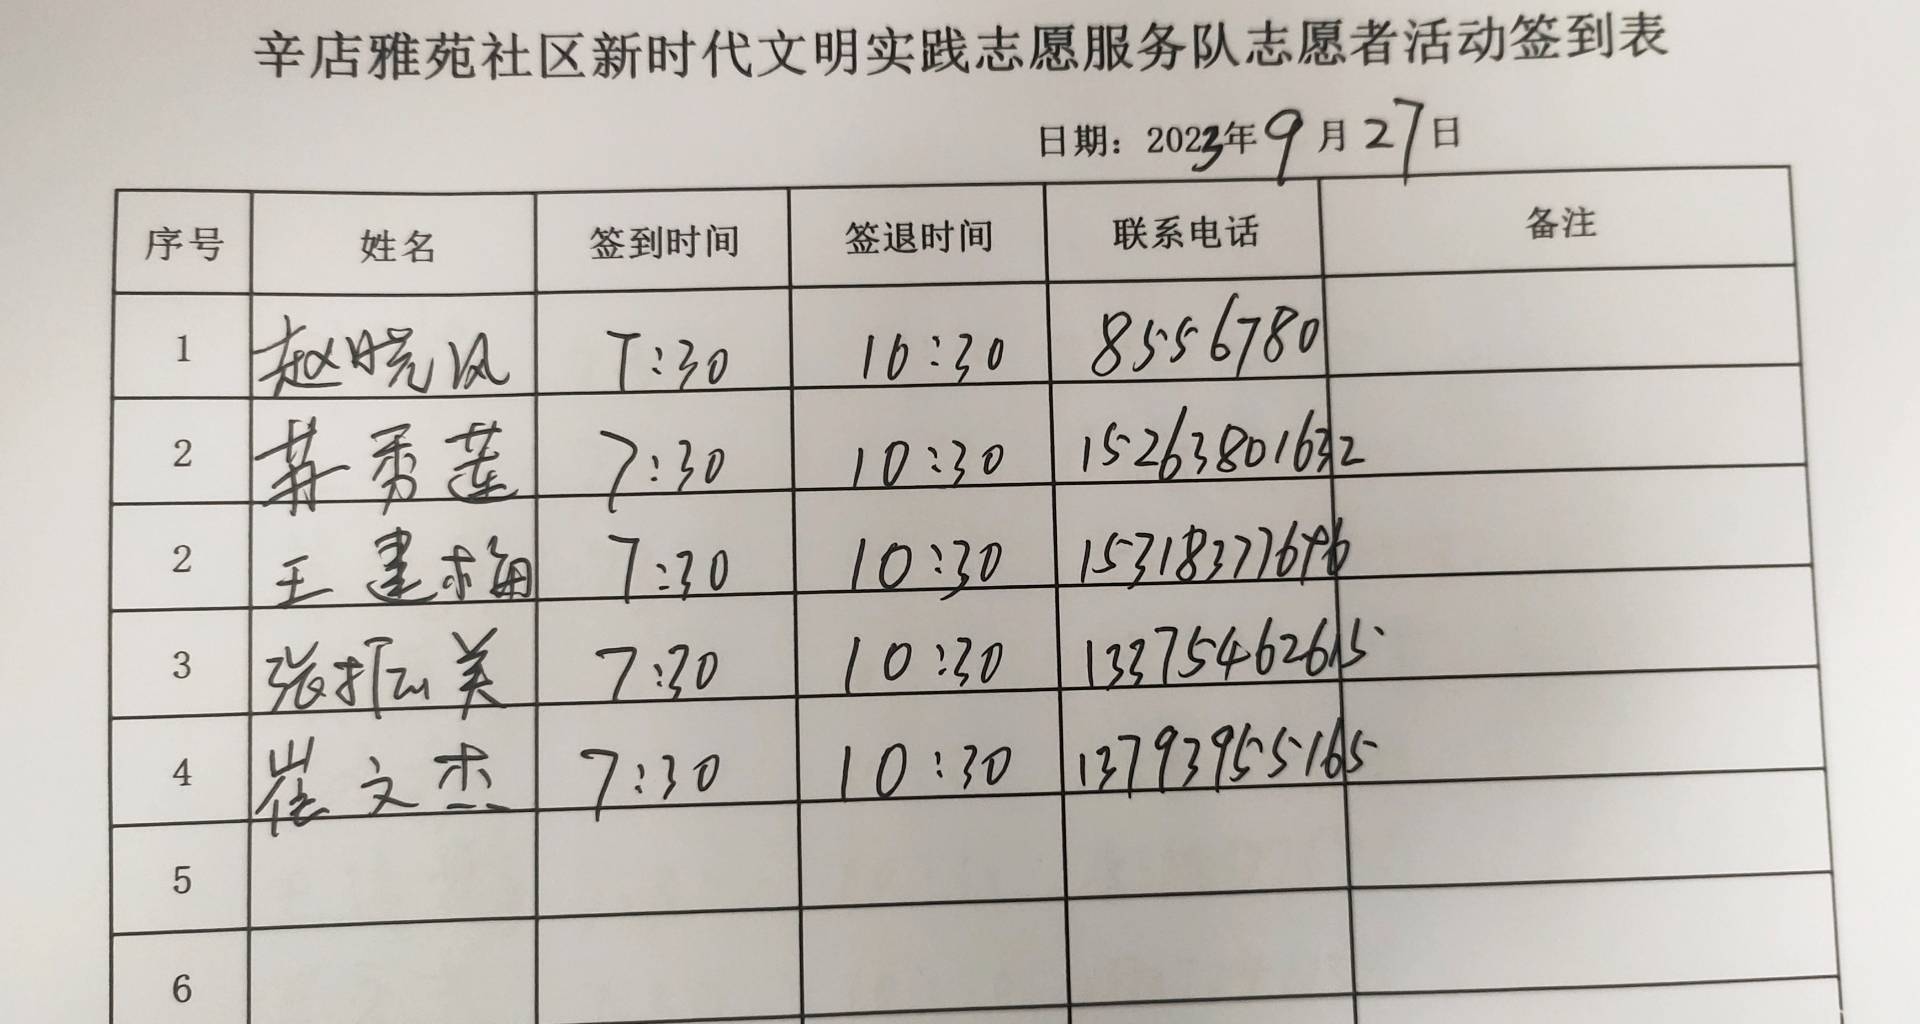 辛店雅苑社区新时代文明实践志愿服务队志愿者活动签到表
日期：2023年9月27日
序号 姓名 签到时间 签退时间 联系电话 备注
1 赵晓风 7:30 10:30 8556780
2 秀莲 7:30 10:30 15263801632
2 王建梅 7:30 10:30 15318377696
3 张振美 7:30 10:30 13375462615
4 崔文杰 7:30 10:30 13793955165
5
6